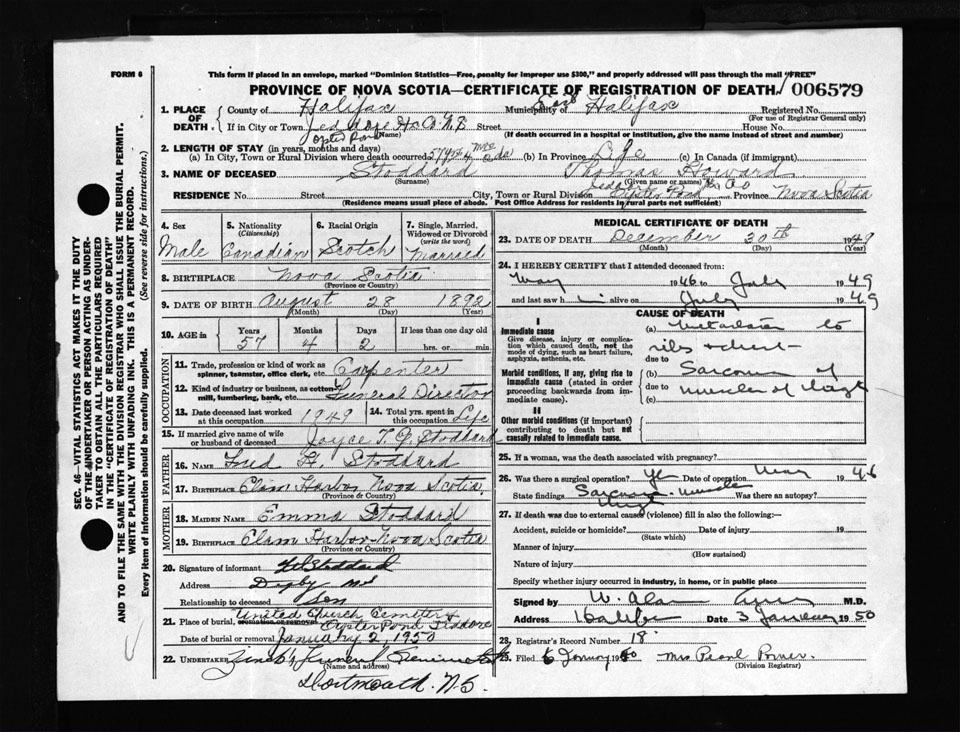 FORM 6
This form if placed in an envelope, marked "Dominion Statistics—Free, penalty for improper use $300," and properly addressed will pass through the mail "FREE"
PROVINCE OF NOVA SCOTIA—CERTIFICATE OF REGISTRATION OF DEATH
006579
1. PLACE OF DEATH
County of Halifax Municipality of East Halifax Registered No.
(For use of Registrar General only)
If in City or Town Jeddore Hx Co N.S Street House No.
Oyster Pond
(Name) (If death occurred in a hospital or institution, give the name instead of street and number)
2. LENGTH OF STAY (in years, months and days)
(a) In City, Town or Rural Division where death occurred 57 yrs 4 mos 2 ds (b) In Province Life (c) In Canada (if immigrant)
3. NAME OF DECEASED Stoddard Thomas Howard
(Surname) (Given name or names)
RESIDENCE No. Street City, Town or Rural Division Oyster Pond Province Nova Scotia
(Residence means usual place of abode. Post Office Address for residents in rural parts not sufficient)
4. Sex Male
5. Nationality (Citizenship) Canadian
6. Racial Origin Scotch
7. Single, Married, Widowed or Divorced (write the word) Married
8. BIRTHPLACE Nova Scotia
(Province or Country)
9. DATE OF BIRTH August 28 1892
(Month) (Day) (Year)
10. AGE in Years 57 Months 4 Days 2 If less than one day old hrs. or min.
OCCUPATION
11. Trade, profession or kind of work as spinner, teamster, office clerk, etc. Carpenter
12. Kind of industry or business, as cotton-mill, lumbering, bank, etc. Funeral Director
13. Date deceased last worked at this occupation 1949
14. Total yrs. spent in this occupation Life
15. If married give name of wife or husband of deceased Joyce T. G. Stoddard
FATHER
16. NAME Fred H. Stoddard
17. BIRTHPLACE Clam Harbor Nova Scotia.
(Province & Country)
MOTHER
18. MAIDEN NAME Emma Stoddard
19. BIRTHPLACE Clam Harbor Nova Scotia
(Province or Country)
20. Signature of informant Stoddard
Address Digby NS
Relationship to deceased Son
21. Place of burial, cremation or removal United Church Cemetery
Oyster Pond Jeddore
Date of burial or removal January 2, 1950
22. UNDERTAKER Funeral
(Name and address)
Dartmouth. N.S.
MEDICAL CERTIFICATE OF DEATH
23. DATE OF DEATH December 30th 1949
(Month) (Day) (Year)
24. I HEREBY CERTIFY that I attended deceased from:
May 1946 to July 1949
and last saw him alive on July 1949
CAUSE OF DEATH
I
Immediate cause
Give disease, injury or complication which caused death, not the mode of dying, such as heart failure, asphyxia, asthenia, etc.
(a) Metastasis to
ribs & chest
due to
Morbid conditions, if any, giving rise to immediate cause (stated in order proceeding backwards from immediate cause).
(b) Sarcoma of
due to muscle of thigh
(c)
II
Other morbid conditions (if important) contributing to death but not causally related to immediate cause.
25. If a woman, was the death associated with pregnancy?
26. Was there a surgical operation? Yes Date of operation May 1946
State findings Sarcoma - muscle thigh Was there an autopsy?
27. If death was due to external causes (violence) fill in also the following:—
Accident, suicide or homicide? Date of injury 19
(State which)
Manner of injury
(How sustained)
Nature of injury
Specify whether injury occurred in industry, in home, or in public place
Signed by W. Alan Curry M.D.
Address Halifax Date 3 January 1950
28. Registrar's Record Number 18
29. Filed 6 January 1950 Mrs Pearl Power.
(Division Registrar)
SEC. 46—VITAL STATISTICS ACT MAKES IT THE DUTY
OF THE UNDERTAKER OR PERSON ACTING AS UNDER-
TAKER TO OBTAIN ALL THE PARTICULARS REQUIRED
IN THE "CERTIFICATE OF REGISTRATION OF DEATH"
AND TO FILE THE SAME WITH THE DIVISION REGISTRAR WHO SHALL ISSUE THE BURIAL PERMIT.
WRITE PLAINLY WITH UNFADING INK. THIS IS A PERMANENT RECORD.
Every item of information should be carefully supplied. (See reverse side for instructions.)